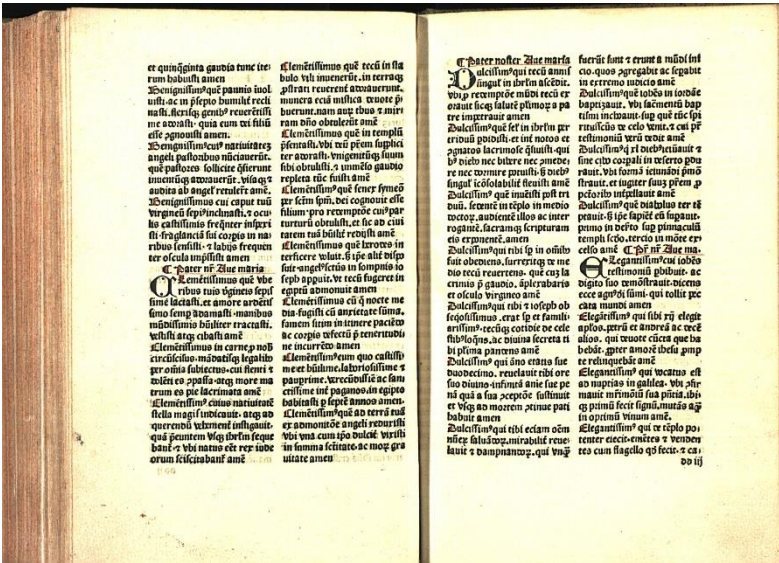 et quinq̄ginta gaudia tunc ite-
rum habuisti amen
Benignissimꝰ quē pannis īuol
uisti·ac in p̄sepio humilit̄ recli
nasti.
me adorasti·quia eum dei filiū
esse ꝓgnouisti amen.
Benignissimꝰ cui⁹ natiuitatē
angeli pastoribus nūciauerūt.
quē pastores sollicite q̄sierunt
inuentūq̄ adorauerūt.
audita ab angel' retulert̄ amē.
Benignissimus cui caput tuū
virgineū sepi⁹ inclinasti. et ocu
lis castissimis freq̄nter inspexi
sti·fraglanciā sui corpis in na
ribus sensisti·et labijs frequen
ter oscula impssisti amen
¶ Pater nr̄ Aue maria
Clemētissimus quē vbe
ribus tuis v̄gineis sepis
sime lactasti. et amore ardētis
simo semp adamasti·manibus
mūdissimis hūiliter tractasti.
vestisti atq̄ cibasti amē
Clemētissimus in carne ꝓ nob̄
circūcisus·mādatisq̄ legalib⁹
per omīa subiectus·cui flenti et
dolēti es ꝯpassa·atq̄ more ma
trum es pie lacrimata amē
Clemētissimꝰ cuius natiuitatē
stella magis indicauit·atq̄ ad
querendū vehement̄ instigauit·
quā seque
banť et vbi natus eēt rex iude
orum sciscitabanť amē
Clemētissimus quē tecū in sta
bulo vili inuenerūt.in terraq̄
ꝓstrati reuerent̄ adorauerunt.
munera eciā mistica deuote p̄
buerunt.nam aux̄ thus et mir
ram dn̄o obtulerūt amē
Clementissimus quē in templū
p̄sentasti·vbi tecū p̄em supplici
ter adorasti·vnigenitūq̄ suum
sibi obtulisti.et immēso gaudio
repleta tūc fuisti amē
Clemētissimꝰ quē senex symeō
per sctm̄ spm̄.dei cognouit esse
filium·pro redemptōe cui⁹ par
turturū obtulisti.et sic ad ciui
tatem tuā hūilit̄ redisti amē
Clementissimus quē herodes in
terficere voluit.
suit·angelꝰ sctūs in somnijs io
seph apparuit.vt tecū fugeret in
egyptū admonuit amen
Clemētissimus cū q̄ nocte me
dia·fugisti cū anxietate sūma.
famem sitim in itinere paciēdo
ac corpis defectū p̄ teneritudi
ne incurrēdo amen
Clemētissimꝰ eum quo castissi-
me et hūilime.laboriosissime et
pauprime.verecūdissie ac san
ctissime int̄ paganos.in egipto
habitasti p̄ septē annos amen.
Clemētissimꝰ quē ad terrā tuā
ex admonitōe angeli reduxisti
vbi vna cum ipo dulcit̄ vixisti
in summa sctitate.ac mor̄ gra
uitate amen
¶ Pater noster Aue maria
Dulcissimꝰ qui tecū annis
singul' in ihrlm̄ ascēdit.
vbi ꝓ redemptōe mūdi tecū ex
orauit siceq̄ salutē plimoꝝ a pa
tre impetrauit amen
Dulcissimꝰ quē
triduū pdidisti·et int̄ notos et
ꝯgnatos lacrimose q̄siuisti.qui
bꝰ diebꝰ nec bibere nec ꝯmede-
re nec dormire potuisti·sȝ dieb⁹
singul' icōsolabilit̄ fleuisti amē
Dulcissimꝰ quē inuēisti post tri
duū.sedentē in tēplo in medio
doctoꝝ.audientē illos ac inter
rogantē.sacramq̄ scripturam
eis exponentē.amen
Dulcissimꝰ qui tibi sp in omib⁹
fuit obediens.surrexitq̄ de me
dio tecū reuertens.
crimis p̄ gaudio.āplexabaris
et osculo virgineo amē
Dulcissimꝰ qui tibi et ioseph ob
seq̄osissimus.erat sp et famili-
arissimꝰ.tecūq̄ cotidie de cele
stib⁹ loq̄ns.ac diuina secreta ti
bi plima pandens amē
Dulcissimꝰ qui āno etatis sue
duodecimo.reuelauit tibi ore
suo diuino·infinitā anie sue pe
nā quā a sua ꝯceptōe sustinuit
et vsq̄ ad mortem ꝯtinue pati
habuit amen
Dulcissimꝰ qui tibi eciam oēm
nūeꝝ saluādoꝝ.mirabilit̄ reue
lauit et dampnandoꝝ.qui vnq̄
fuerūt sunt et erunt a mūdi ini
cio.quos ꝯgregabit ac sep̄abit
in extremo iudicio amē
Dulcissimꝰ quē iohēs in iordāe
baptizauit. vbi sac̄mentū bap
tismi inchoauit.sup quē tūc spi
ritusscūs de celo venit.et cui⁹ p̄r
testimoniū verū dedit amē
Dulcissimꝰ q̄ xl dieb⁹ ieiūauit et
sine cibo corpali in deserto pdu
rauit.vbi formā ieiunādi p̄mō
strauit.et iugiter suū p̄rem ꝓ
pctōrib⁹ int̄pellauit amē
Dulcissimꝰ quē diabolus ter tē
ptauit·sȝ ipe sapiēt̄ eū supauit.
primo in deserto sup pinnaculū
templi scdō.tercio in mōte ex-
celso amē ¶ Pr̄ nr̄ Aue ma.
Elegantissimꝰ cui iohēs
testimoniū phibuit.ac
digito suo demōstrauit·dicens
ecce agnꝰ di summi.qui tollit pec
cata mundi amen
Elegātissimꝰ qui sibi xij elegit
aplos.petrū et andreā ac cete
alios.qui deuote cūcta que ha
bebāt.ꝓpter amorē ihesu ꝓmp
te relinquebāt amē
Elegantissimꝰ qui vocatus est
ad nuptias in galilea. vbi ꝯfir
mauit mr̄imoniū sua pn̄tia.ibi-
q̄ primū fecit signū.mutās aq̄
in optimū vinum amē.
Elegantissimꝰ qui de tēplo po-
tenter eiecit·emētes et venden
tes cum flagello qd̄ fecit. et ca-
dd iij